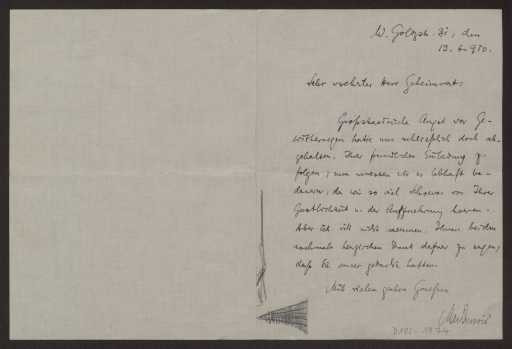 W. Goltzstr. 31, den
13. 6. 910.
Sehr verehrter Herr Geheimrat,
Grossstädtische Angst vor Ge-
witterregen hatte uns schliesslich doch ab-
gehalten, Ihrer freundlichen Einladung zu
folgen; nun müssen wir es lebhaft be-
dauern, da wir so viel Schönes von Ihrer
Gastlichkeit u. der Aufführung hören.
Aber ich will nicht versäumen, Ihnen beiden
nochmals herzlichen Dank dafür zu sagen,
daß Sie unser gedacht hatten.
Mit vielen guten Grüßen